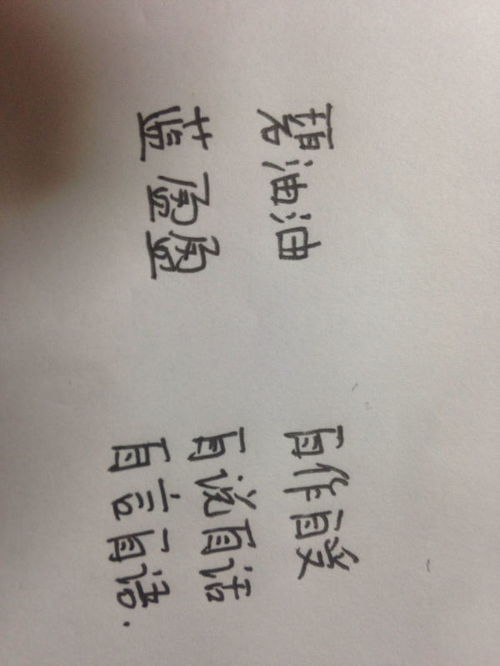 碧油油
蓝盈盈
自作自受
自说自话
自言自语.